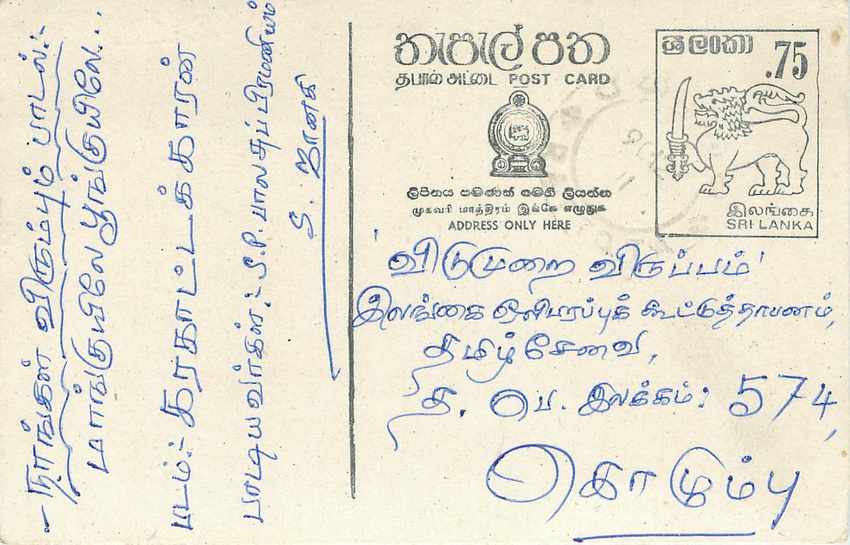 நாங்கள் விரும்பும் பாடல்:-
மாங்குயிலே பூங்குயிலே...
படம்:- கரகாட்டக்காரன்
பாடியவர்கள்:- S.P. பாலசுப்பிரமணியம்
S. ஜானகி
තැපැල් පත
தபால் அட்டை POST CARD
ලිපිනය පමණක් මෙහි ලියන්න
முகவரி மாத்திரம் இங்கே எழுதுக
ADDRESS ONLY HERE
ශ්‍රී ලංකා
.75
இலங்கை
SRI LANKA
'விடுமுறை விருப்பம்'
இலங்கை ஒலிபரப்புக் கூட்டுத்தாபனம்,
தமிழ் சேவை,
த. பெ. இலக்கம்: 574,
கொழும்பு